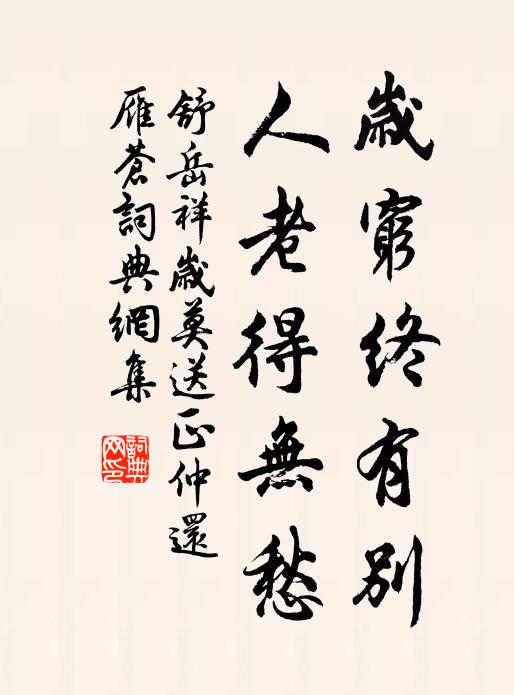 歲窮終有別
人老得無愁
舒岳祥歲莫送正仲還
雁蒼詞典網集
詞典
网印